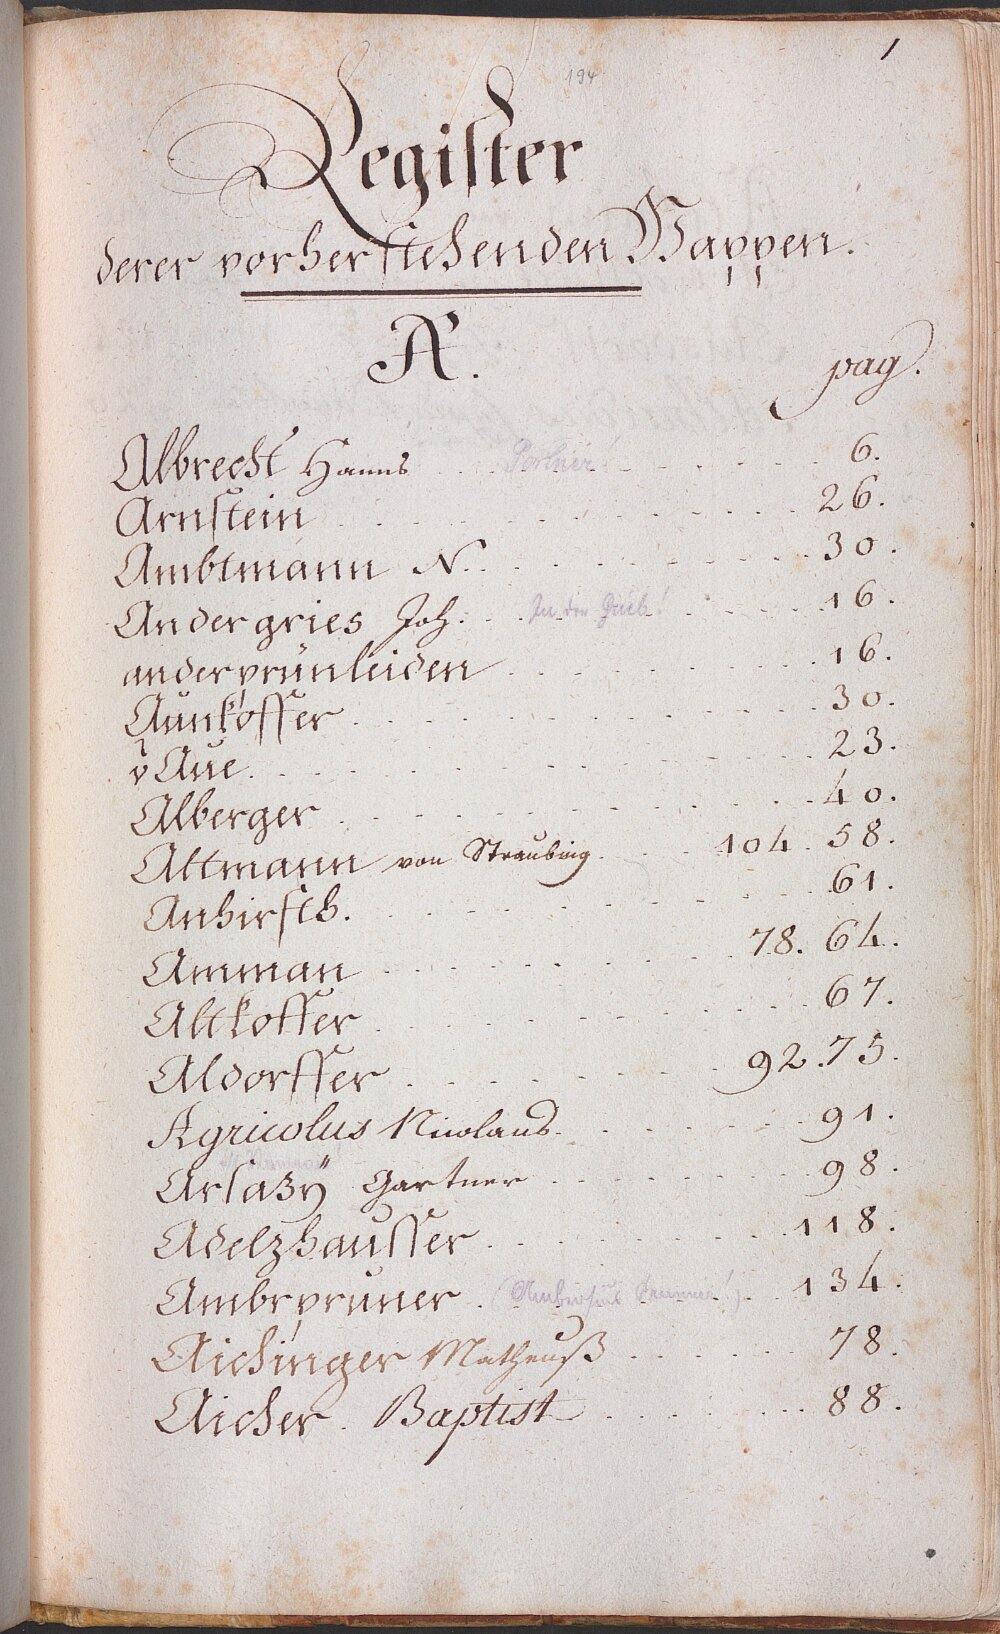 1
194
Register
derer vorherstehenden Wappen.
A.
pag.
Albrecht Hanns Portner 6.
Arnstein 26.
Ambtmann N. 30.
Andergries Joh: In der Grieb! 16.
anderprünleiden 16.
Aunkoffer 30.
v Aue. 23.
Alberger 40.
Altmann von Straubing 104. 58.
Anhirsch. 61.
Amman 78. 64.
Altkoffer 67.
Aldorffer 92. 75.
Agricolus Nicolaus. 91.
Arsazÿ Gartner 98.
Adelzhausser 118.
Ambrpruner 134.
Aichinger Matheuß 78.
Aicher. Baptist 88.